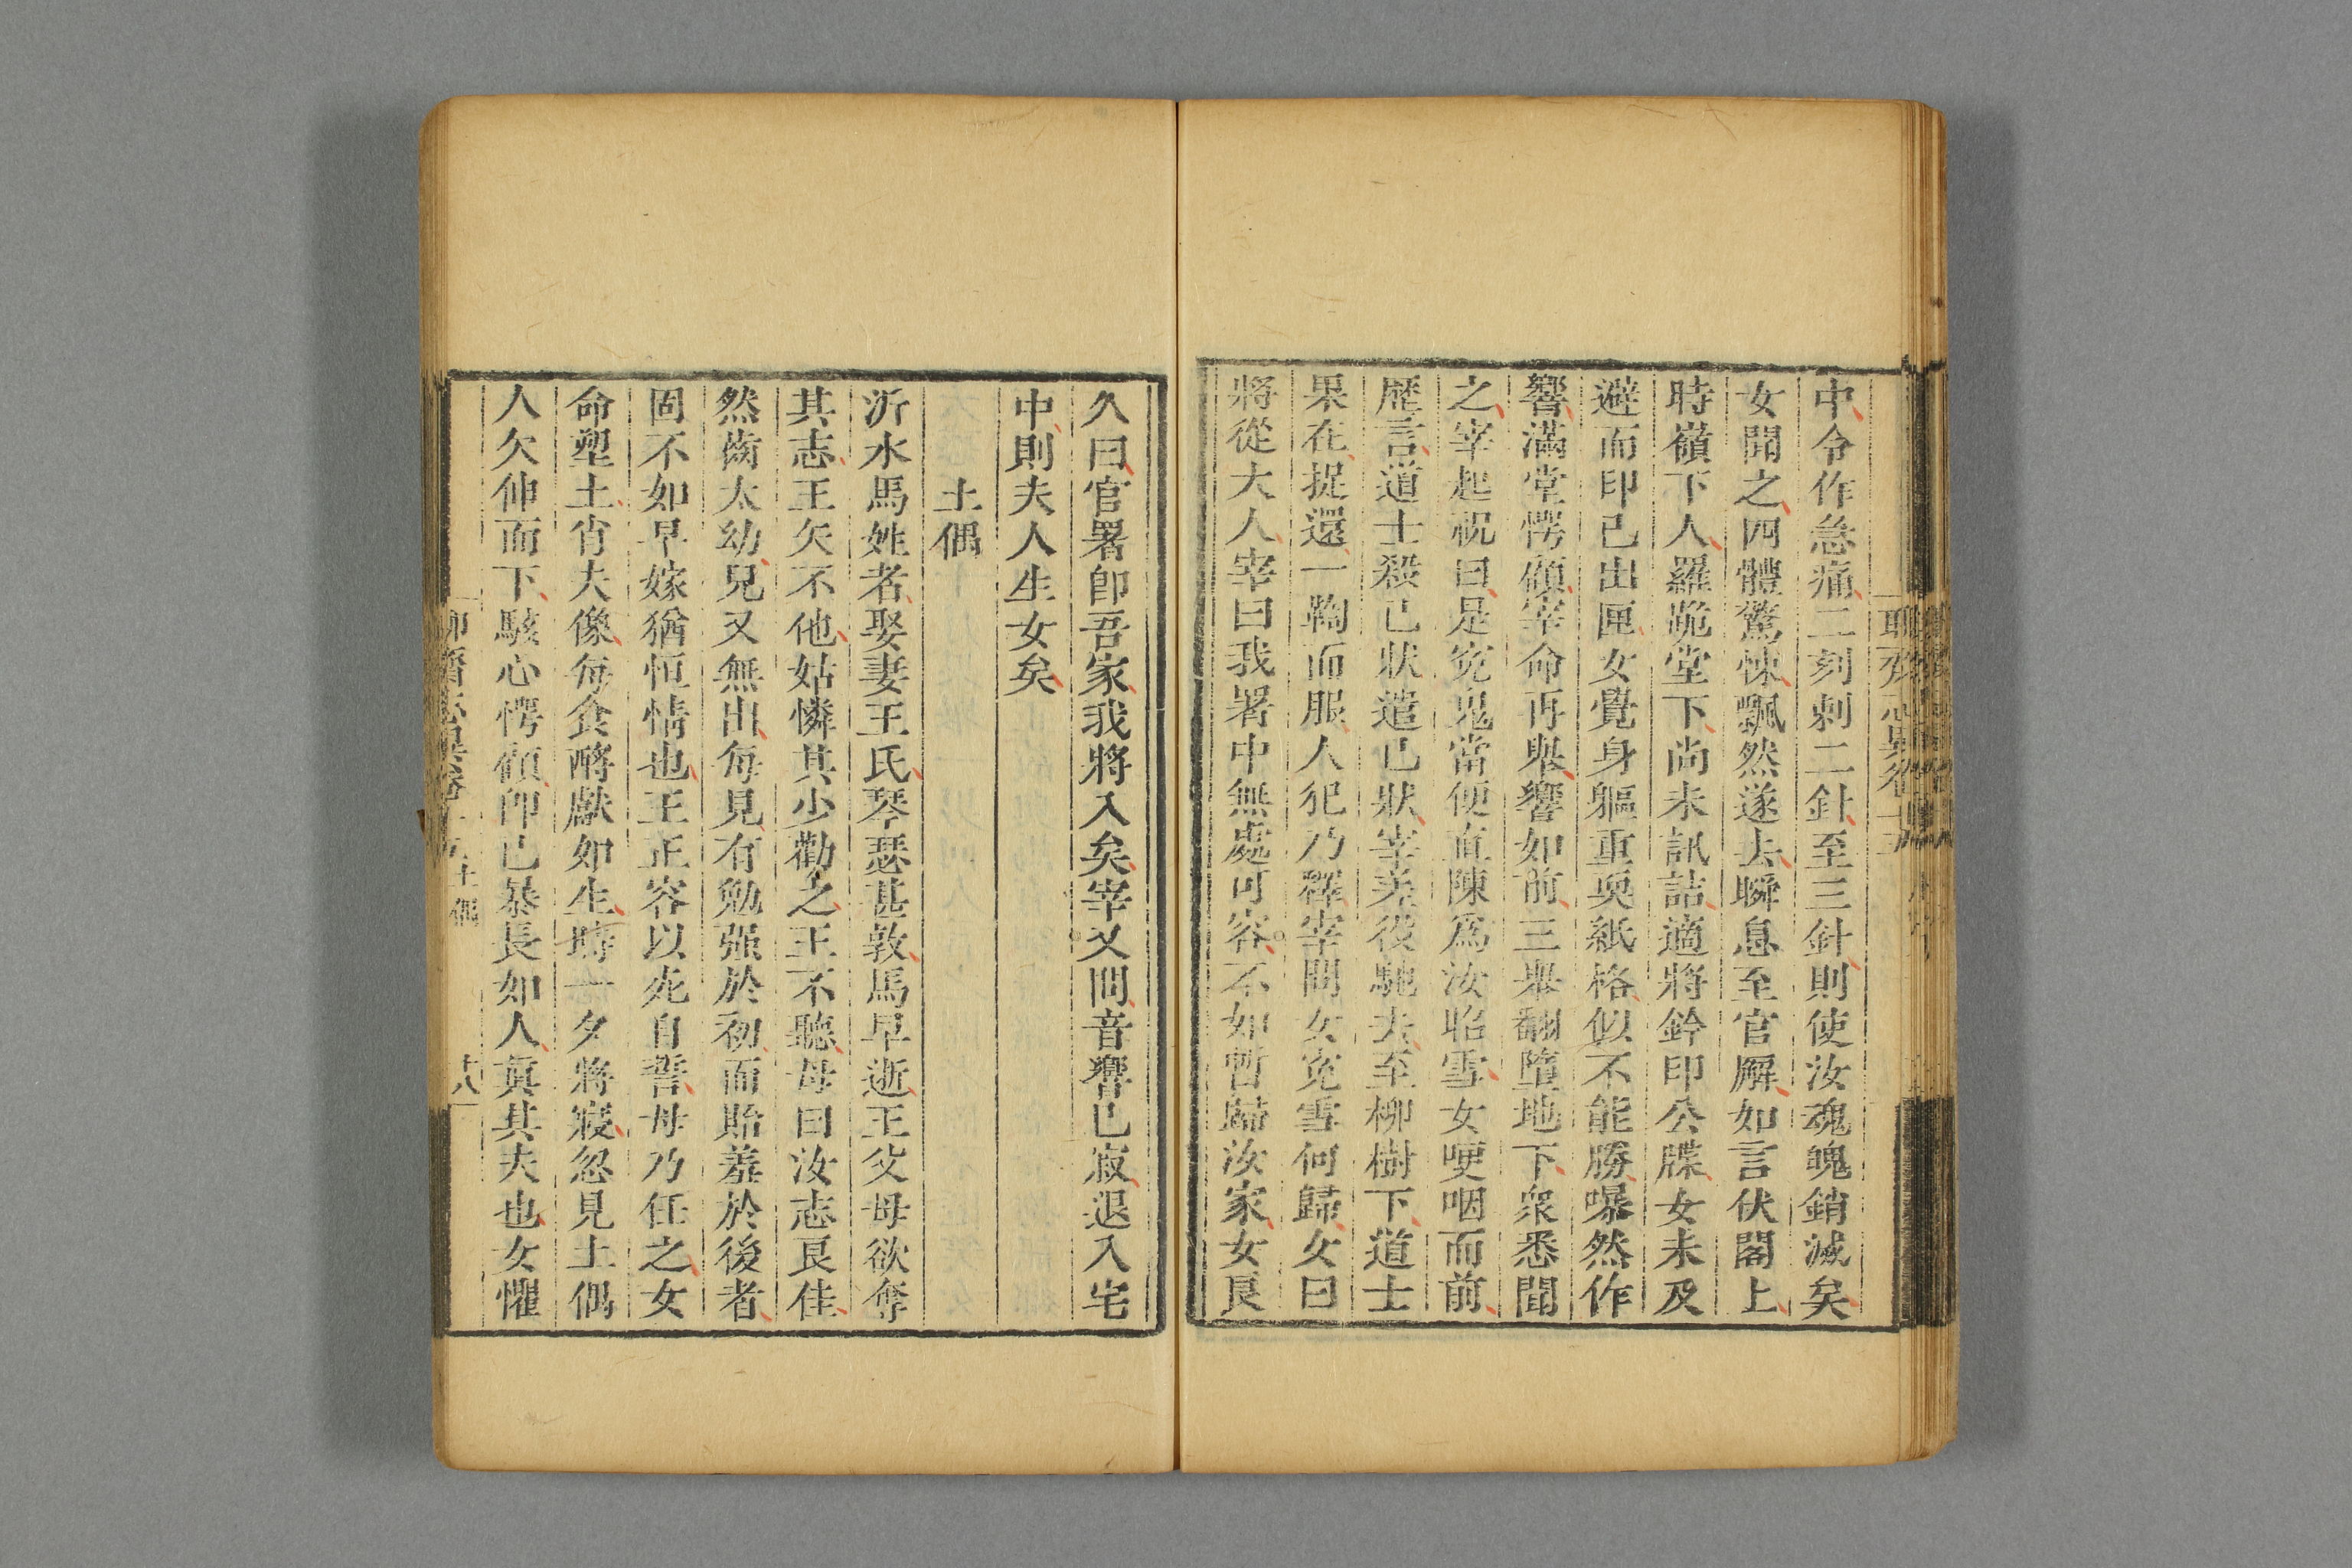 中令作急痛二刻刺二針至三針則使汝魂魄銷滅矣
女聞之四體驚悚飄然遂去瞬息至官廨如言伏閣上
時嶺下人羅跪堂下尚未訊詰適將鈐印公牒女未及
避而印已出匣女覺身軀重耎紙格似不能勝曝然作
響滿堂愕顧宰命再舉響如前三舉翻墮地下衆悉聞
之宰起祝曰是寃鬼當便直陳爲汝昭雪女哽咽而前
歷言道士殺已狀遣已狀宰差役馳去至柳樹下道士
果在捉還一鞫而服人犯乃釋宰問女寃雪何歸女曰
將從大人宰曰我署中無處可容不如暫歸汝家女良
久曰官署卽吾家我將入矣宰又問音響已寂退入宅
中則夫人生女矣
土偶
沂水馬姓者娶妻王氏琴瑟甚敦馬早逝王父母欲奪
其志王矢不他姑憐其少勸之王不聽母曰汝志良佳
然齒太幼兒又無出每見有勉强於初而貽羞於後者
固不如早嫁猶恒情也王正容以死自誓母乃任之女
命塑土肖夫像每食酹獻如生時一夕將寢忽見土偶
人欠伸而下駭心愕顧卽已暴長如人真其夫也女懼
土偶
十八